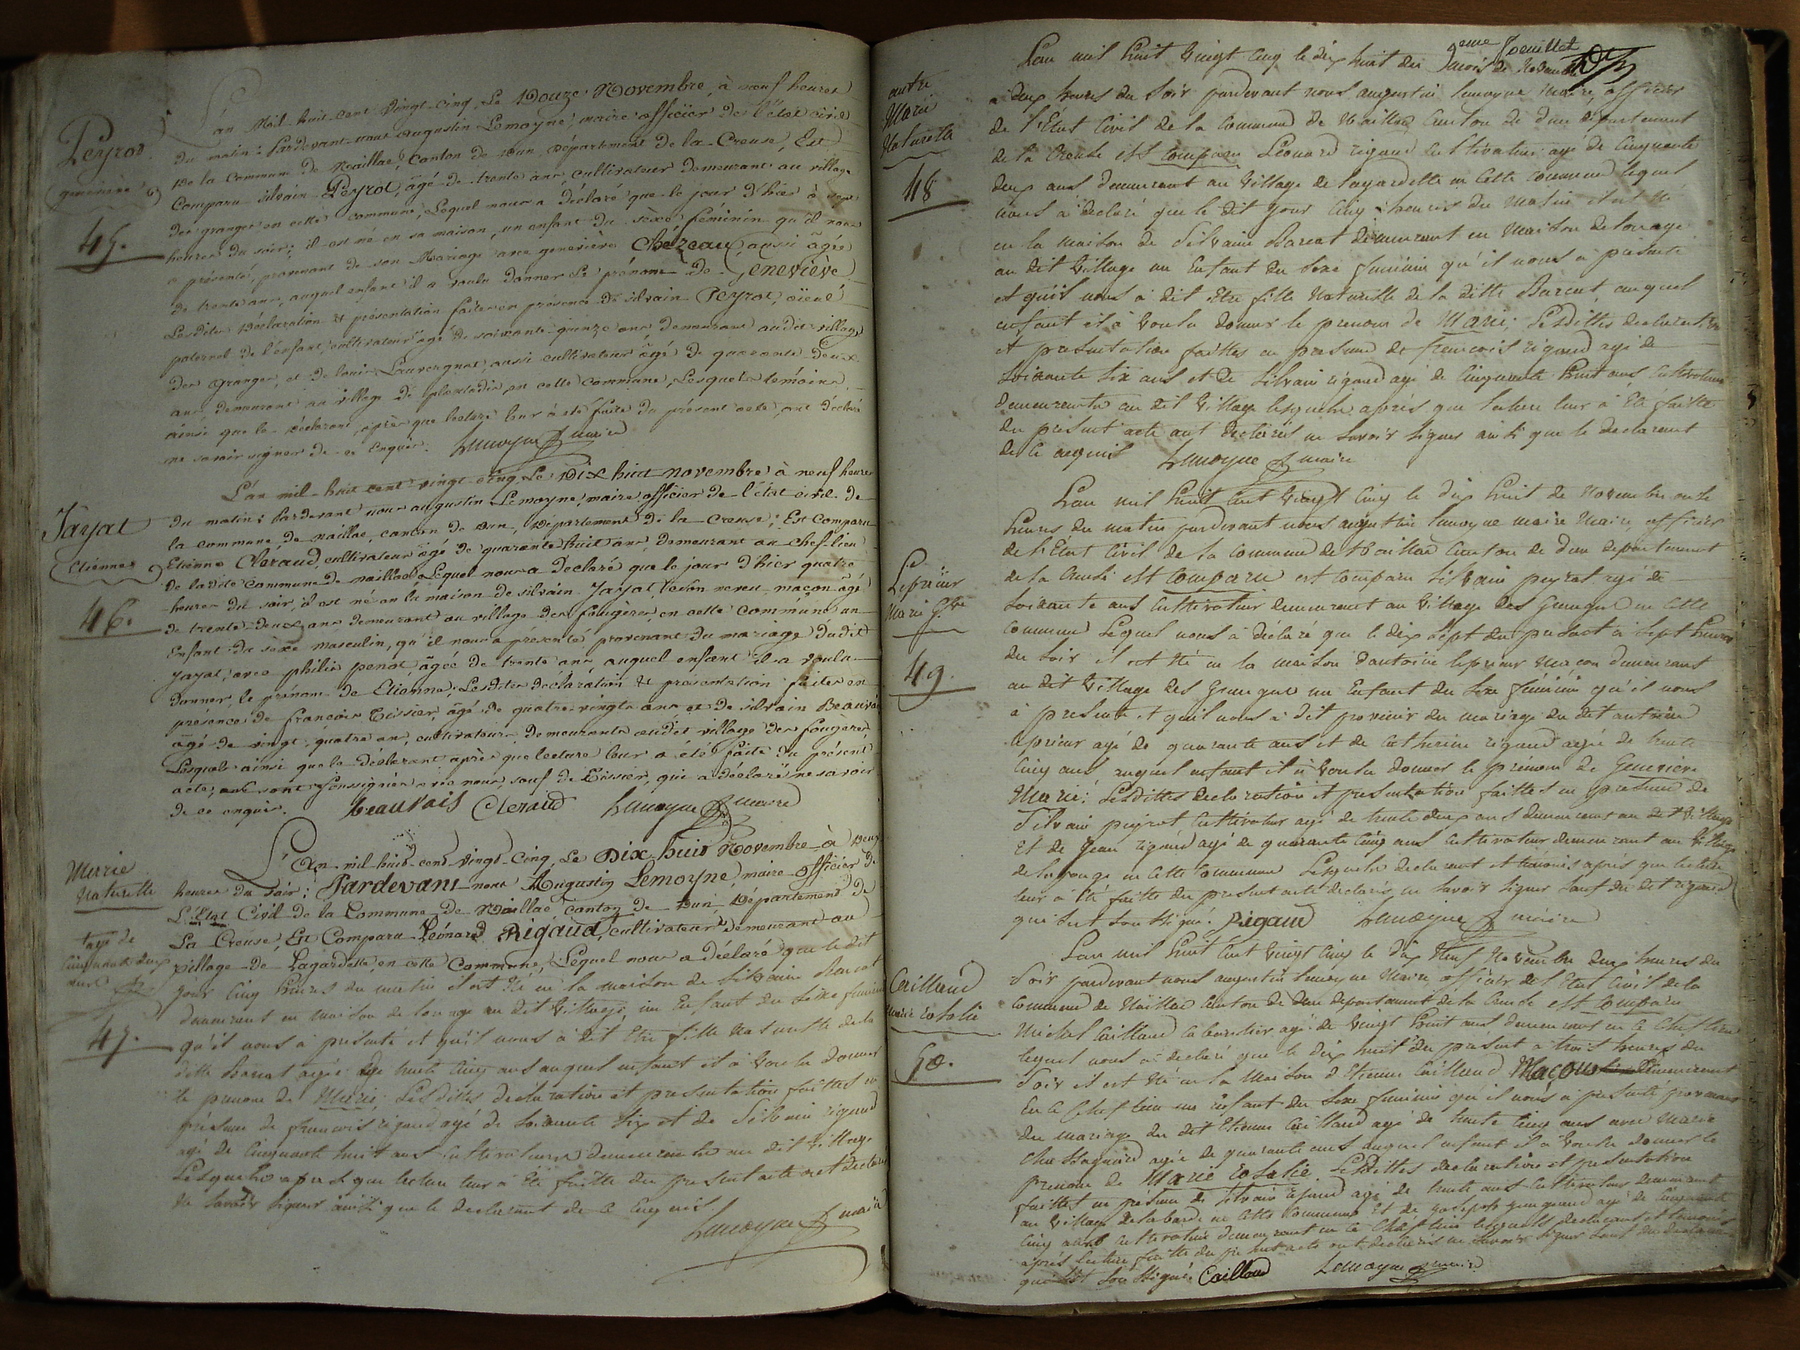 Peyrot
geneviève
45.
L'an Mil-huit-cent Vingt-Cinq, Le Douze Novembre, à neuf heures
du matin: Pardevant nous Augustin Lemoyne, maire officier de l'état civil
De la Commune de Naillac, Canton de Dun, Département de la Creuse, Est
Comparu silvain Peyrot, âgé de trente ans, cultivateur demeurant au village
des granges en cette commune, Lequel nous a déclaré que le jour d'hier à
heures du soir, il est né en sa maison, un enfant du sèxe féminin qu'il nous
a présenté, provenant de son Mariage avec geneviève Chézeau, aussi âgée
de trente ans, auquel enfant il a voulu donner le prénom de Geneviève
Lesdites Déclaration et présentation faites en présence de silvain Peyrot, aïeul
paternel de l'enfant, cultivateur âgé de soixante-quinze ans demeurant audit village
des granges, et de louis Lauvergnat, aussi cultivateur âgé de quarante deux
ans demeurant au village de en cette commune, Lesquels témoins
ainsi que le déclarant, après que lecture leur a été faite du présent acte, ont déclaré
ne savoir signer de ce enquis. Lemoyne maire
Jayat
Etienne
46.
L'an mil-huit cent vingt-cinq, Le Dix huit novembre à neuf heures
du matin: Pardevant nous augustin Lemoyne, maire officier de l'état civil de
la commune de naillac, canton de Dun, Département de la Creuse; Est Comparu
Etienne Cléraud, cultivateur âgé de quarante huit ans, demeurant au chef-lieu
de ladite commune de naillac, Lequel nous a déclaré que le jour d'hier quatre
heures du soir, il est né en la maison de silvain Jayat, son neveu maçon âgé
de trente-deux ans demeurant au village des fougères, en cette commune un
Enfant du sèxe masculin, qu'il nous a présenté provenant du mariage dudit
jayat, avec philis penot, âgée de trente ans auquel enfant il a voulu
donner, le prénom de Etienne. Lesdites déclaration et présentation faites en
présence de françois Tissier, âgé de quatre-vingts ans et de silvain Beauvais
âgé de vingt quatre ans, cultivateurs demeurants audit village des fougères
Lesquels ainsi que le déclarant après que lecture leur a été faite du présent
acte, ont sousigné avec nous, sauf de Tissier, que a déclaré ne savoir
de ce enquis. beauvais Cleraud Lemoyne maire
Marie
Naturelle
agé de
Cinquante deux
ans
47.
L'an mil-huit cent vingt-cinq, Le Dix huit Novembre à Deux
heures du soir; Pardevant nous Augustin Lemoyne, maire officier de
L'Etat Civil de la Commune de Naillac canton de Dun, Département de
La Creuse, Est Comparu Léonard Rigaud, cultivateur demeurant au
village de Lagardette, en cette Commune, Lequel nous a déclaré que le dit
jour cinq heures du matin il est né en la maison de Silvaine Barcat
demeurant en maison de louage au dit village, un Enfant du sexe féminin
qu'il nous a présenté et qu'il nous a dit être fille naturelle de la
ditte Barcat agée de trente cinq ans auquel enfant il a voulu donner
le prenom de Marie; Lesdittes declaration et presentation faittes en
présence de francois rigaud agé de soixante six et de Silvain rigaud
agé de Cinquante huit ans Cultivateurs demeurants au dit village
Lesquels après que lecture leur a été faitte du present acte ont declaré
ne savoir signer ainsi que le declarant de ce enquis
Lemoyne maire
9eme feuillet
autre
Marie
Naturelle
48
L'an mil huit vingt cinq le dix huit du mois de Novembre
a deux heures du soir pardevant nous augustin lemoyne maire, officier
de l'Etat Civil de la Commune de Naillac Canton de dun departement
de la Creuse est comparu Léonard rigaud Cultivateur agé de Cinquante
deux ans demeurant au village de lagardette en cette commune lequel
nous à declaré que le dit jour cinq heures du matin il est né
en la maison de Silvaine Barcat demeurant en maison de louage
au dit village un Enfant du sexe feminin qu'il nous a présenté
et qu'il nous à dit etre fille Naturelle de la ditte Barcat, auquel
enfant il à voulu donner le prenom de Marie; Lesdittes declaration
et presentation faittes en presence de francois rigaud agé de
Soixante six ans et de Silvain rigaud agé de Cinquante huit ans cultivateurs
demeurants au dit village lesquels après que lecture leur à été faitte
du present acte ont declarés ne savoir signer ainsi que le declarant
de ce enquis Lemoyne maire
Leprieur
Marie Gve
49.
L'an mil huit cent vingt cinq le dix huit de Novembre onze
heures du matin pardevant nous augustin lemoyne maire Maire, officier
de l'Etat Civil de la commune de Naillac Canton de dun departement
de la Creuse est comparu est comparu Silvain peyrot agé de
Soixante ans Cultivateur demeurant au village des Granges en cette
commune lequel nous à déclaré que le dix sept du present à sept heures
du soir il est né en la maison d'antoine leprieur Maçon demeurant
au dit village des Granges un Enfant du sexe feminin qu'il nous
à presenté et qu'il nous à dit provenir du mariage du dit antoine
leprieur agé de quarante ans et de Catherine rigaud agée de trente
Cinq ans auquel enfant il à voulu donner le prénom de Genevieve
Marie; Lesdittes declaration et presentation faittes en presence de
Silvain peyrot Cultivateur agé de trente deux ans demeurant au dit village
Et de Jean rigaud agé de quarante cinq ans cultivateur demeurant au village
de en cette commune Lesquels declarant et temoins après que lecture
leur à été faitte du present acte declaré ne savoir signer sauf du dit rigaud
qui s'est sousigné. Rigaud Lemoyne maire
Caillaud
Marie Rosalie
50.
L'an mil huit cent vingt cinq le dix Neuf Novembre deux heures du
Soir pardevant nous augustin lemoyne Maire officier de l'Etat Civil de la
commune de Naillac Canton de dun departement de la Creuse est comparu
Michel Caillaud Cabaretier agé de vingt huit ans demeurant en ce Chef lieu
lequel nous à declaré que le dix huit du present à trois heures du
Soir il est né en la Maison d'Etienne Caillaud Maçon demeurant
En ce Chef lieu un enfant du sexe feminin qu'il nous à presenté provenant
du mariage du dit Etienne Caillaud agé de trente cinq ans avec Marie
agée de quarante ans auquel enfant il à voulu donner le
prenom de Marie Rosalie. Lesdittes declaration et presentation
faittes en presence de Silvain agé de trente ans Cultivateur demeurant
au village de en cette Commune Et de agé de Cinquante
Cinq ans Cultivateur demeurant en ce Chef lieu lesquels declarant et temoins
après lecture faitte du present acte ont declarés ne savoir signer sauf du declarant
qui s'est Sousigné Caillaud Lemoyne maire